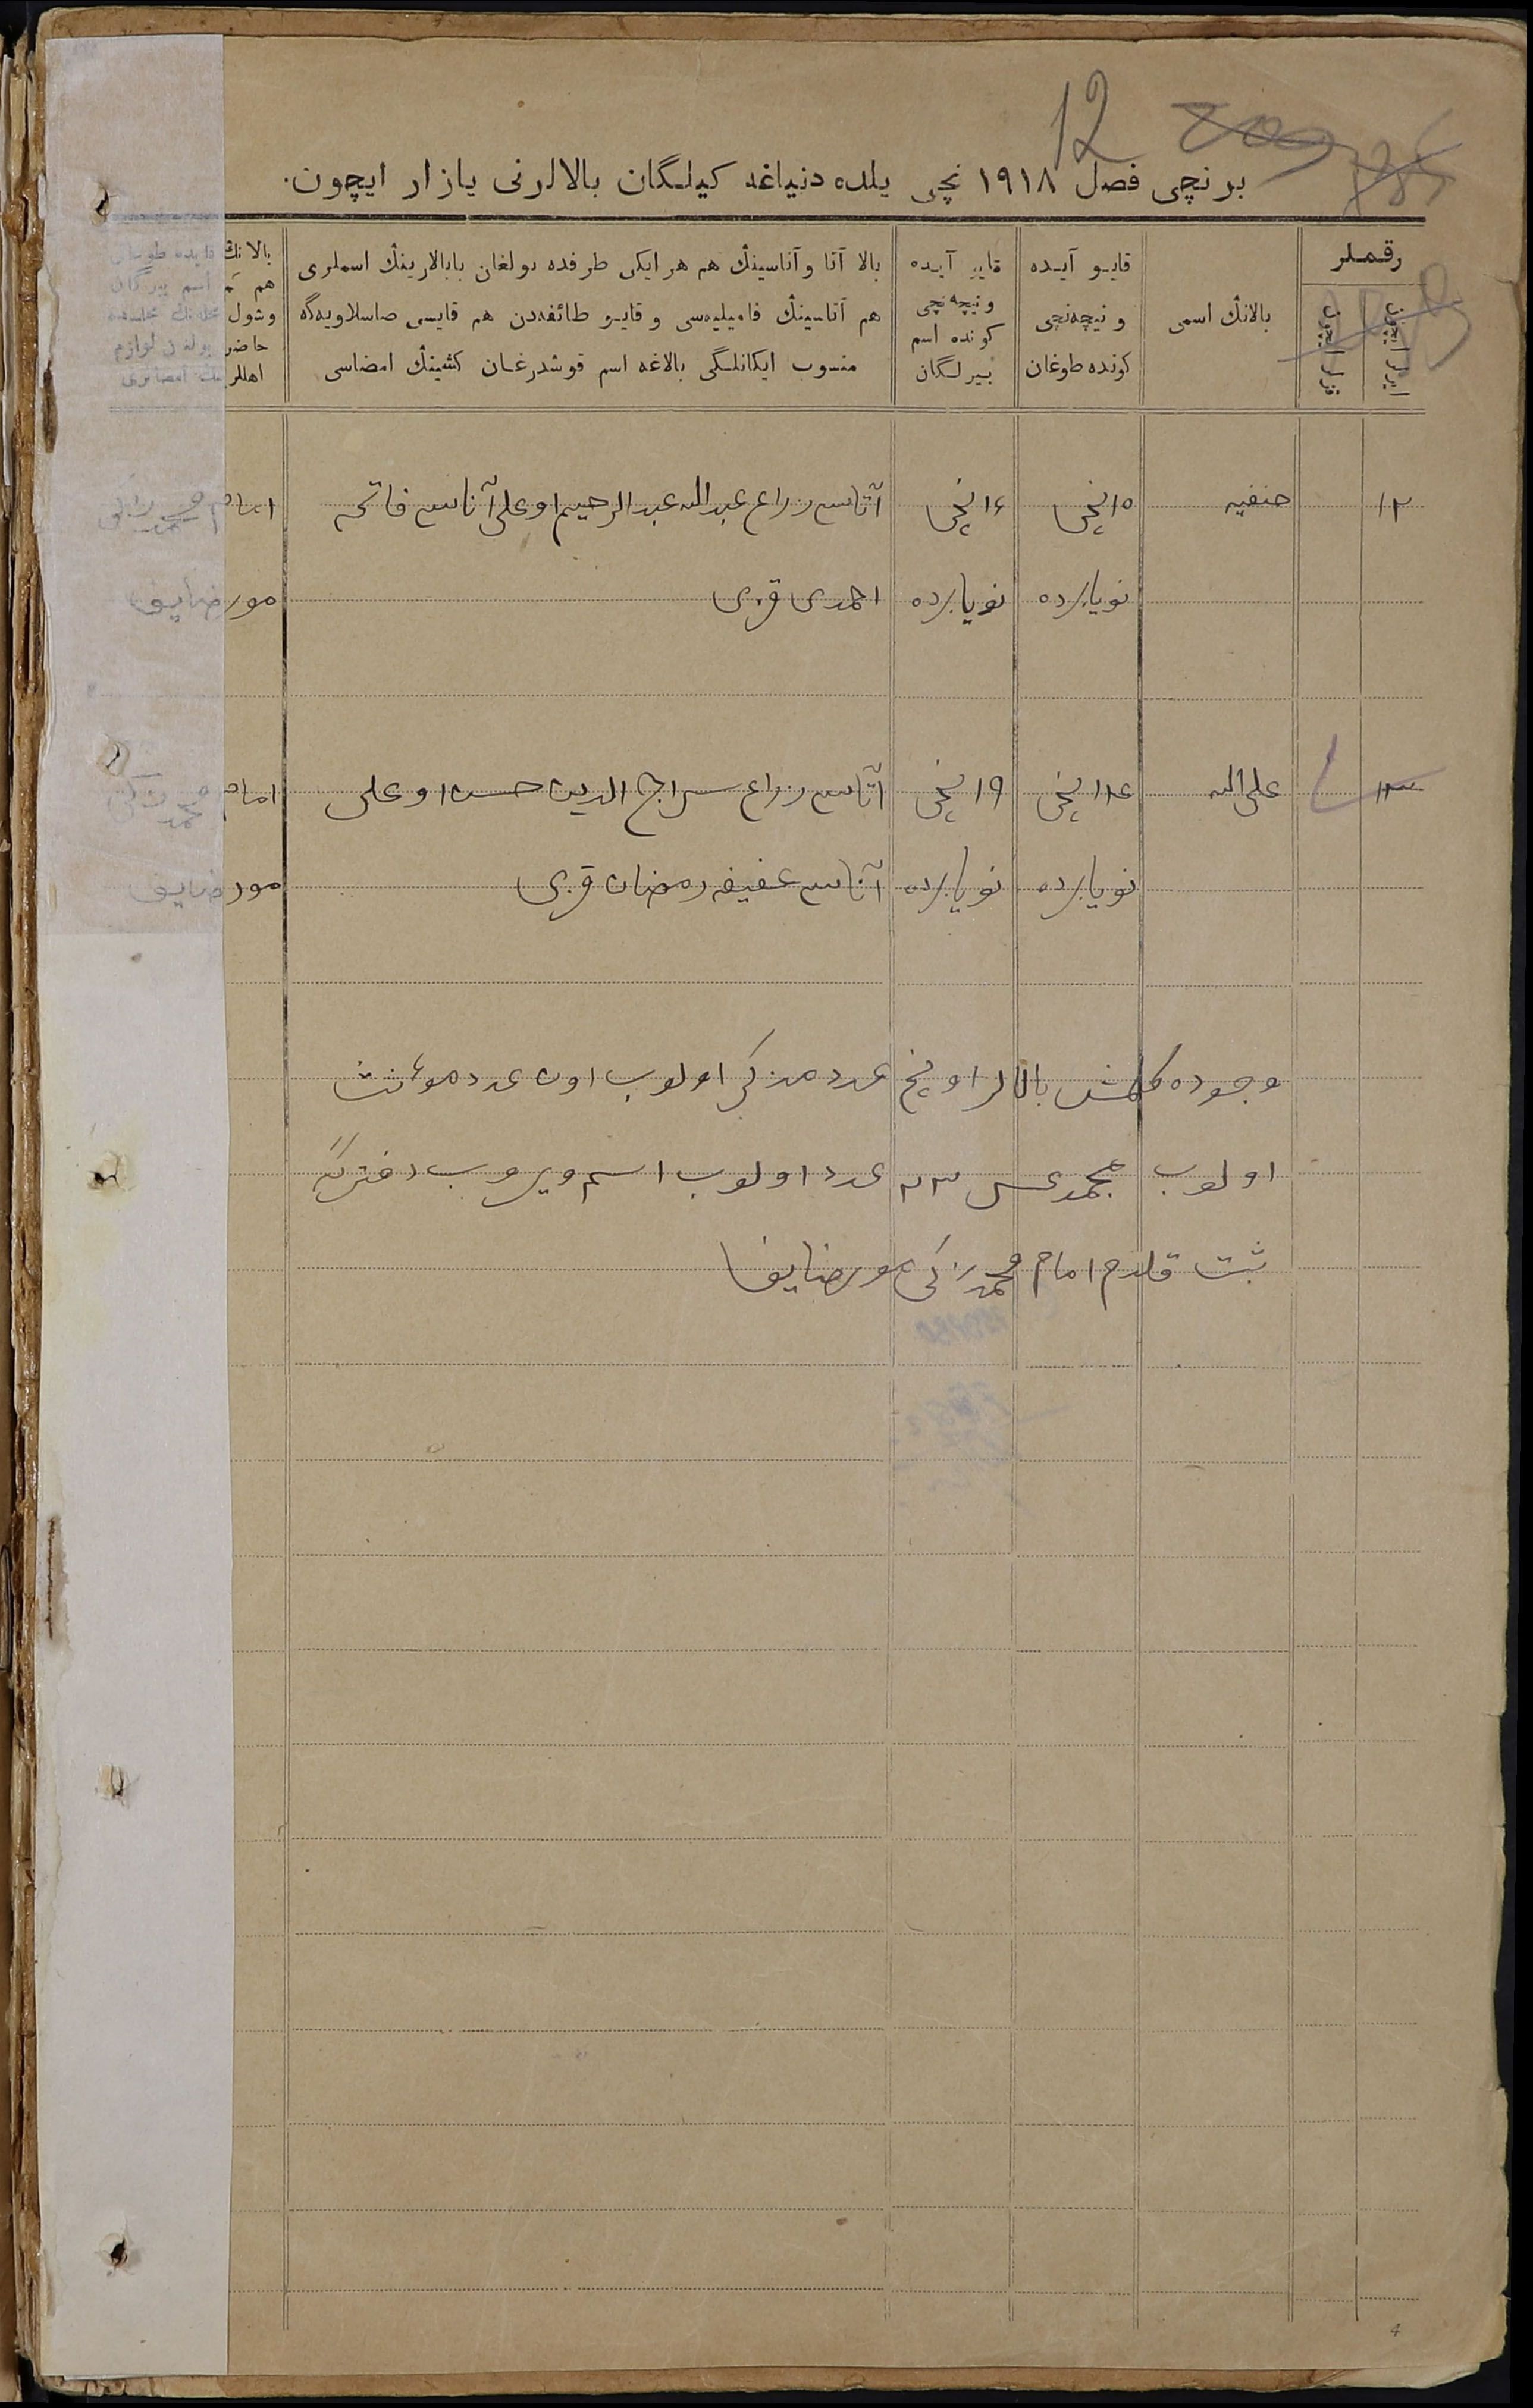 12
برنچی فصل ١٩١٨ نچی یلده دنیاغه کیلگان بالالرنی یازار ایچون.
رقملر
ایرلر ایچون
قزلر ایچون
بالانڭ اسمی
قایو آیده
و نیچه‌نچی
کونده طوغان
قایو آیده
و نیچه‌نچی
کونده اسم
بیرلگان
بالا آتا و آناسینڭ هم هر ایکی طرفده بولغان بابالارینڭ اسملری
هم آتاسینڭ فامیلیه‌سی و قایو طائفه‌دن هم قایسی صاسلاویه‌گه
منسوب ایکانلگی بالاغه اسم قوشدرغان کشینڭ امضاسی
بالانڭ قایده طوغان
هم کم اسم بیرگان
وشول محله‌نڭ
حاضر بولغان لوازم
اهللرینڭ امضالری
١٢ حنفیه ١٥ نچی ١٦ نچی آتاسی زراع عبدالله عبدالرحیم اوغلی آناسی فاتحه امام محمد زاکی
نویابرده نویابرده احمدی قزی مورضایف
١٣ علی الله ١٦ نچی ١٩ نچی آتاسی زراع سراج الدین حسن اوغلی امام محمد زکی
نویابرده نویابرده آناسی عفیفه رمضان قزی مورضایف
وجوده کلمش بالالر اوچ عدد مذکر اولوب اون عدد موءنث
اولوب عدد اولوب اسم ویروب دفترگه
ثبت قلدم امام محمد زکی مورضایف
4